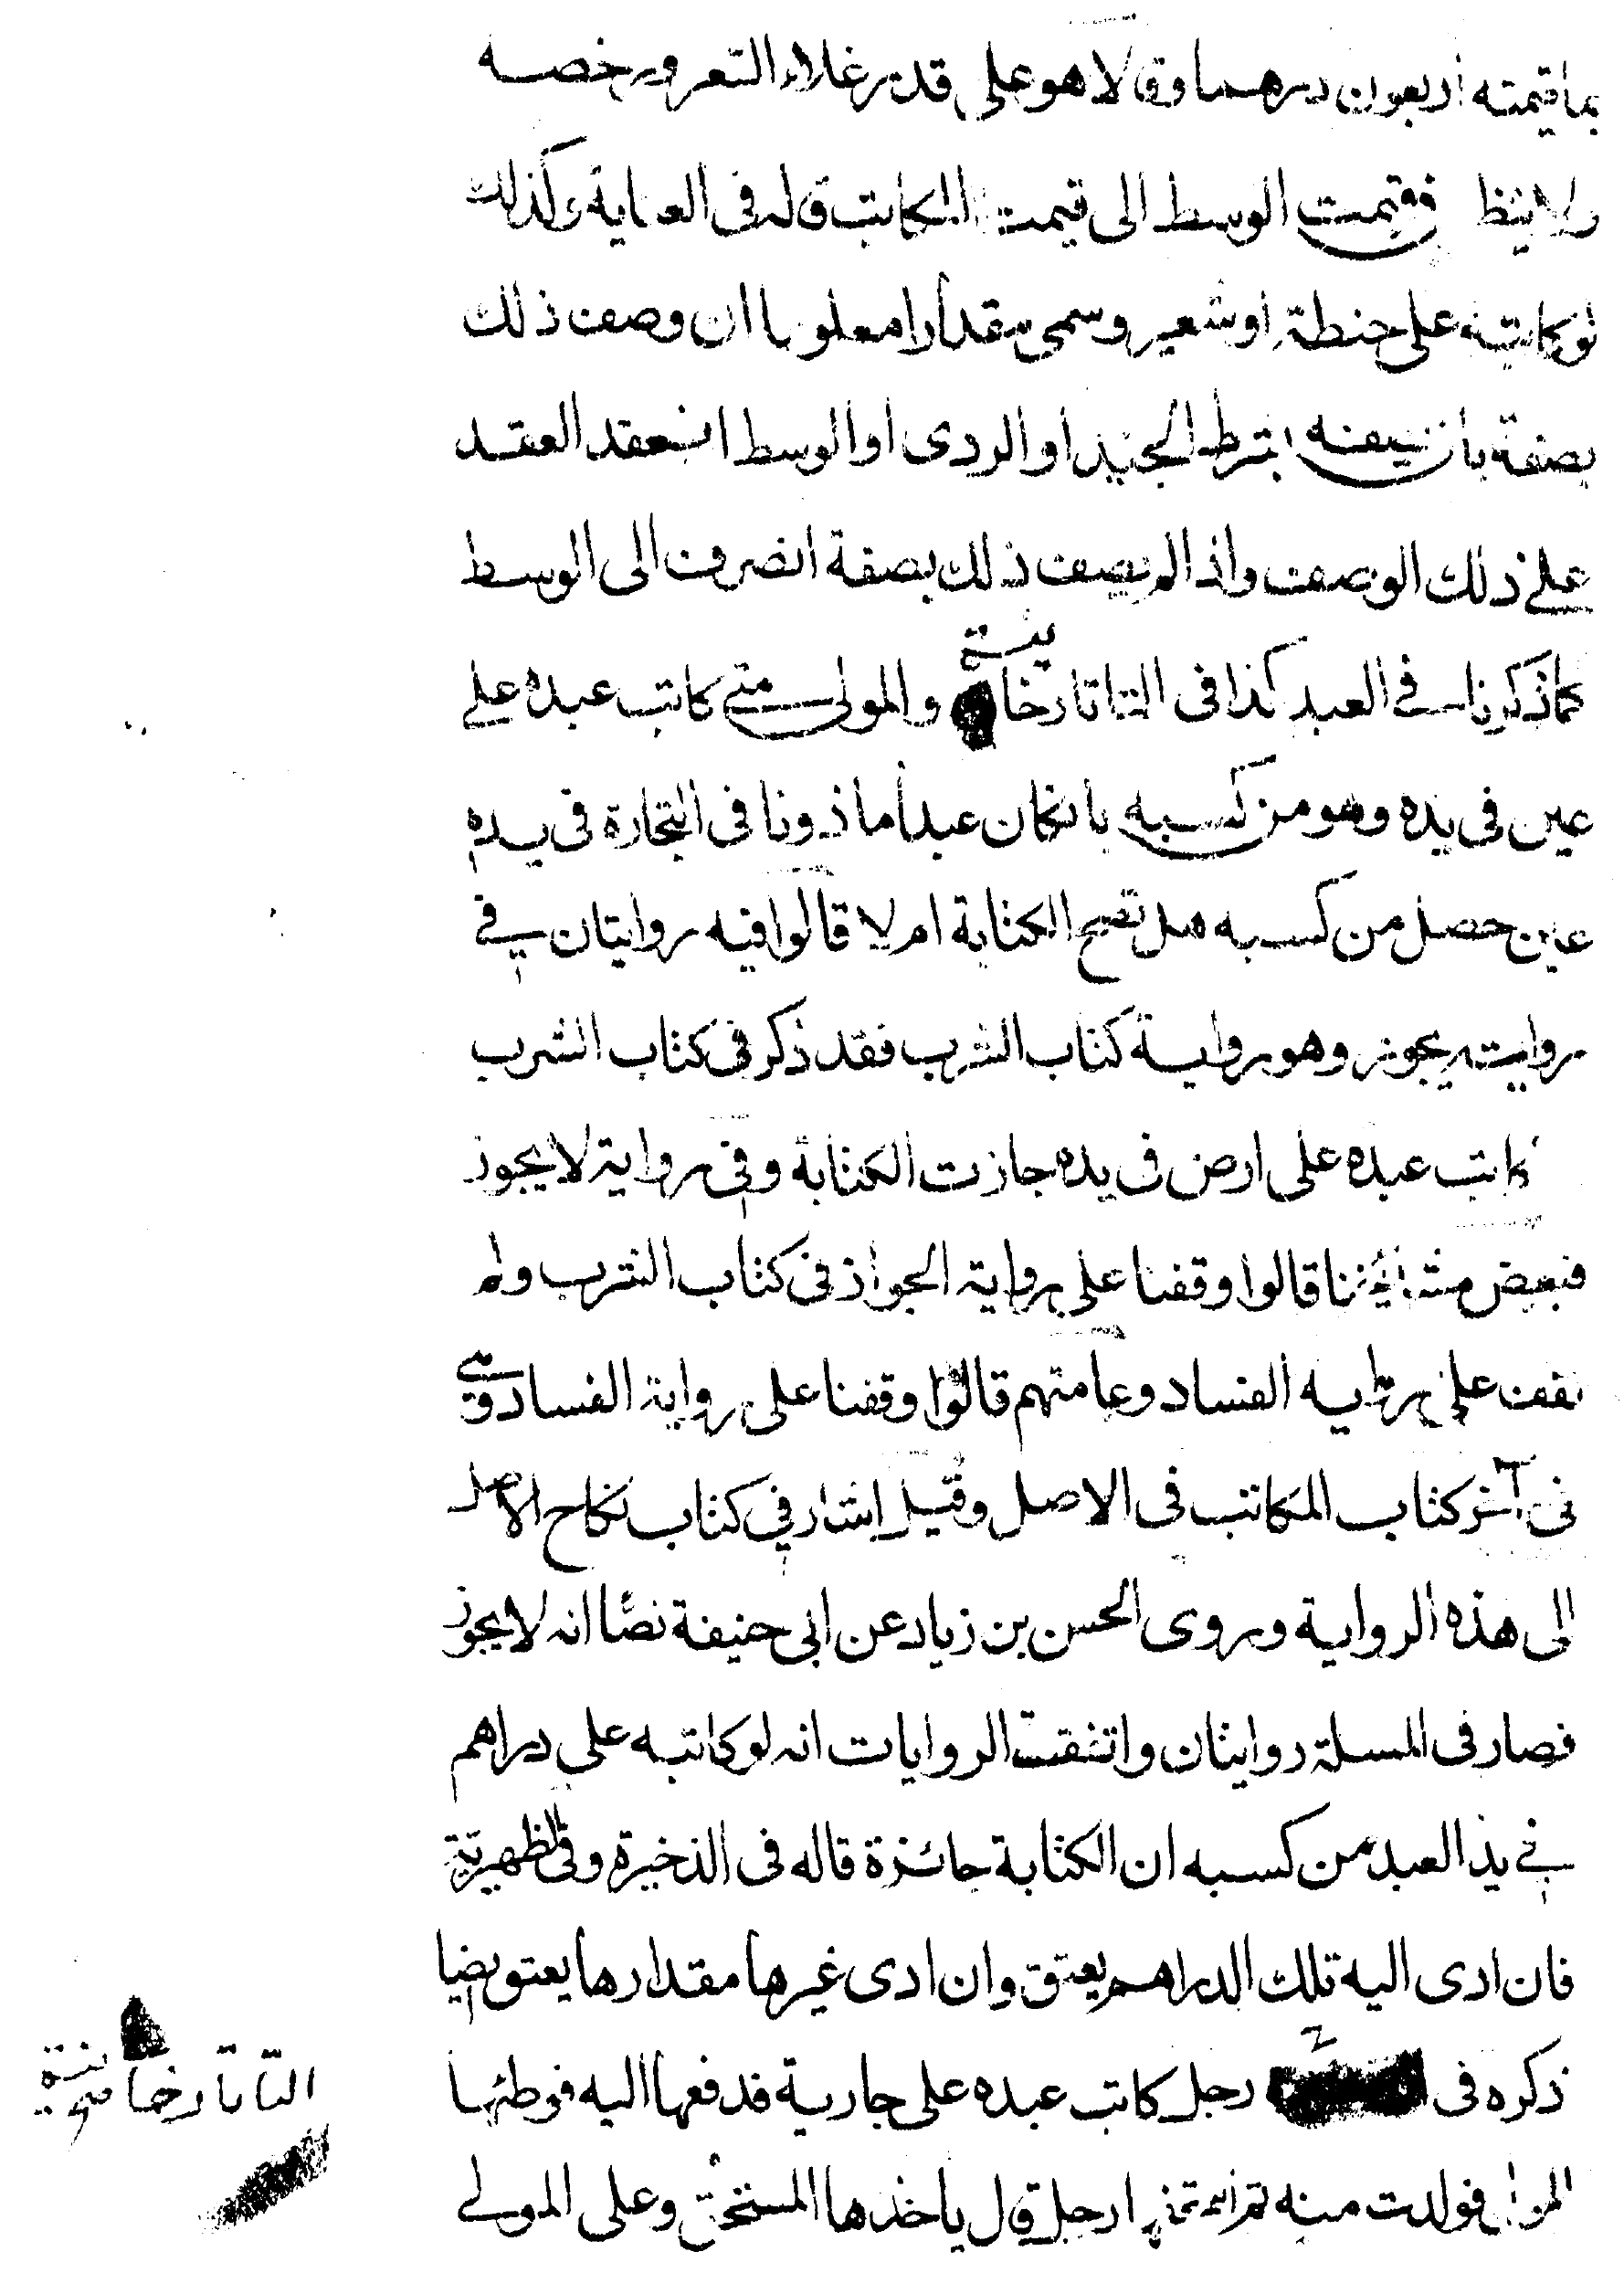 بما قيمته اربعون درهما وقالا هو على قدر غلاء السعر ورخصه
ولا ينظر فى قيمت الوسط الى قيمت المكاتب قاله فى العناية وكذلك
لو كاتبه على حنطة او شعير وسمى مقدارا معلوما ان وصف ذلك
بصفة بان يصفه بشرط الجيد او الردى او الوسط انعقد العقد
على ذلك الوصف واذا لم يصف ذلك بصفة انصرف الى الوسط
كما ذكرنا فى العبد كذا فى التاتارخانية والمولى متى كاتب عبده على
عين فى يده وهو من كسبه بان كان عبدا ماذونا فى التجارة فى يده
عين حصل من كسبه هل تصح الكتابة ام لا قالوا فيه روايتان فى
رواية يجوز وهو رواية كتاب الشرب فقد ذكر فى كتاب الشرب
كاتب عبده على ارض فى يده جازت الكتابة وفى رواية لا يجوز
فبعض مشائخنا قالوا وقفنا على رواية الجواز فى كتاب الشرب ولم
نقف على رواية الفساد وعامتهم قالوا وقفنا على رواية الفساد وهى
فى آخر كتاب المكاتب فى الاصل وقيل اشار فى كتاب نكاح الاصل
الى هذه الرواية وروى الحسن بن زياد عن ابى حنيفة نصًا انه لا يجوز
فصار فى المسلة روايتان واتفقت الروايات انه لو كاتبه على دراهم
فى يد العبد من كسبه ان الكتابة جائزة قاله فى الذخيرة وفى الظهيرية
فان ادى اليه تلك الدراهم يعتق وان ادى غيرها مقدارها يعتق ايضا
ذكره فى رجل كاتب عبده على جارية فدفعها اليه فوطئها
المولى فولدت منه ثم استحقها رجل قال ياخذها المستحق وعلى المولى
التاتارخانية صح